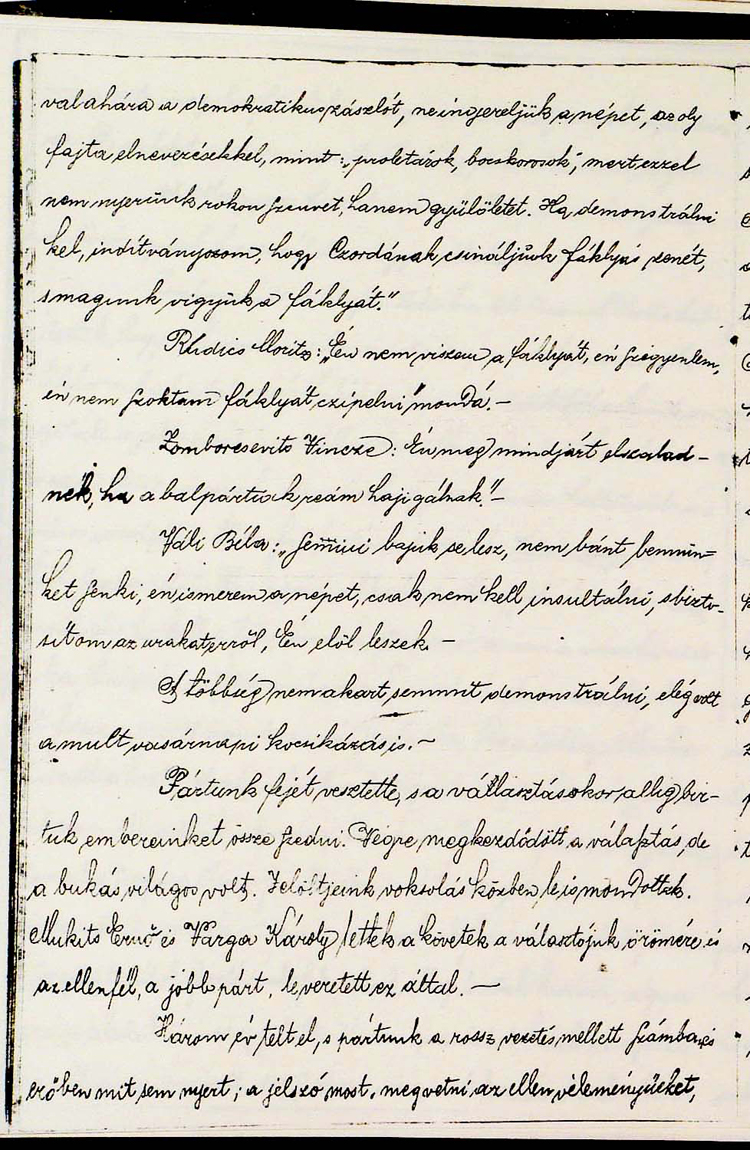 valahára a demokratikus zászlót, ne ingereljük a népet, az oly
fajta elnevezésekkel, mint: „proletárok, bocskorosok", mert ezzel
nem nyerünk rokon szenvet, hanem gyülöletet. Ha demonstrálni
kel, indítványozom, hogy Czordának csináljunk fáklyás zenét,
s magunk vigyük a fáklyát."
Rudics Móritz: „Én nem viszem a fáklyát, én szégyenlem,
én nem szoktam fáklyát czipelni" mondá. —
Zomborcsevits Vincze: Én meg mindjárt elszalad-
nék, ha a balpártiak reám hajigálnak!" —
Váli Béla: „Semmi bajuk se lesz, nem bánt bennün=
ket senki, én ismerem a népet, csak nem kell insultálni, s bizto-
sitom az urakat erről, Én elöl leszek. —
A többség nem akart semmit demonstrálni, elég volt
a mult vasárnapi kocsikázás is. —
Pártunk fejét vesztette, s a választásokor allig bir-
tuk embereinket össze szedni. Végre megkezdődött a választás, de
a bukás világos volt. Jelöltjeink voksolás közben le is mondottak.
Mukits Ernő és Varga Károly lettek a követek a választójuk örömére és
az ellenfél, a jobb párt, leveretett ez által. —
Három év telt el, s pártunk a rossz vezetés mellett számba és
erőben mit sem nyert; a jelszó most, megvetni az ellen véleményüeket,